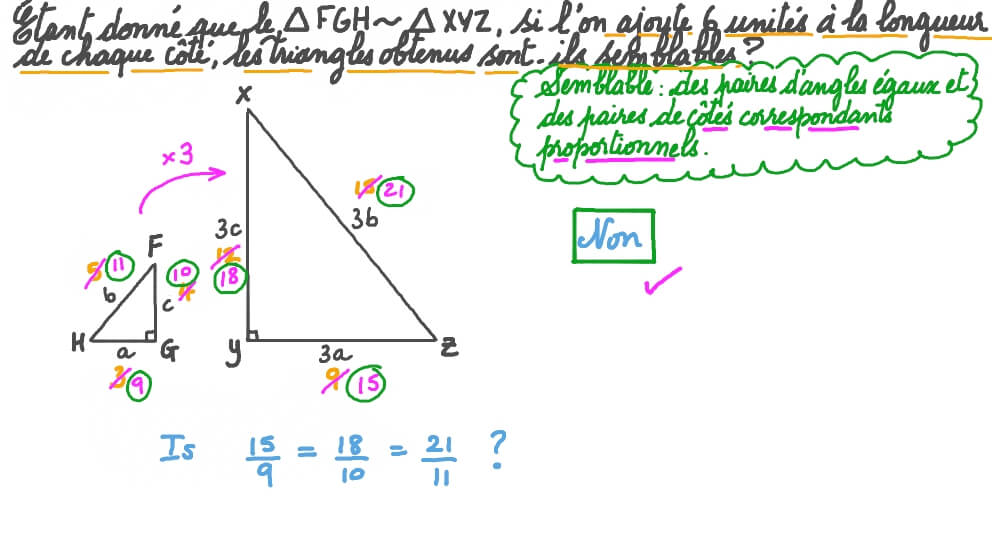 Étant donné que le △FGH~△XYZ, si l'on ajoute 6 unités à la longueur
de chaque côté, les triangles obtenus sont-ils semblables?
Semblable: des paires d'angles égaux et
des paires de côtés correspondants
proportionnels.
X
×3
15 21
3b
3c
Non
12
18
F
5 11
10
4
b
c
H
a
G
y
3a
Z
3 9
9 15
Is 15/9 = 18/10 = 21/11 ?